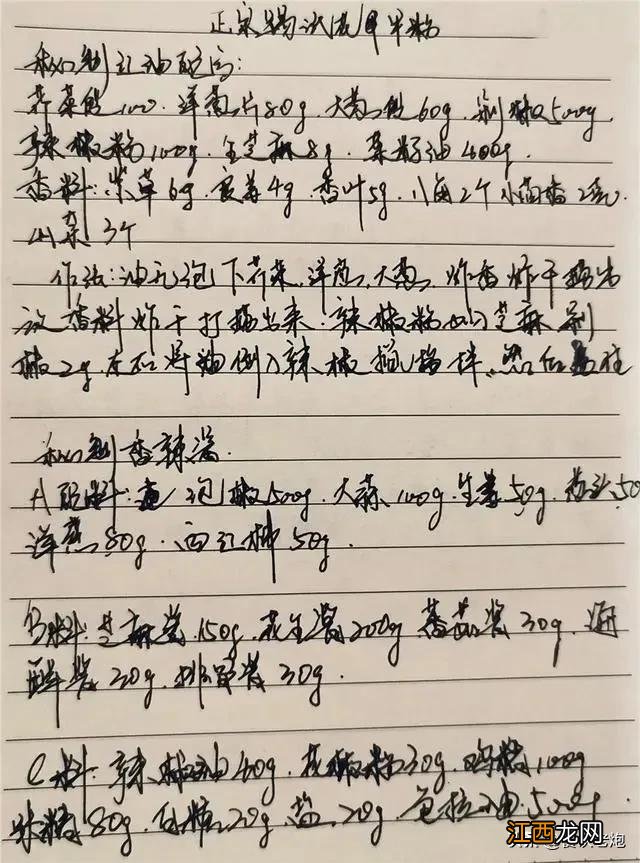 正宗锡纸花甲米粉
私制红油配方:
芹菜段100. 洋葱片80g. 大葱段60g. 剁椒500g.
辣椒粉100g. 生芝麻8g. 菜籽油400g.
香料: 紫草6g. 良姜4g. 香叶5g. 八角2个 小茴香2克.
山奈 3个
作法: 油九泡下芹菜. 洋葱. 大葱. 炸香炸干捞出
放香料炸干打捞出来. 辣椒粉 芝麻 剁
椒2g. 油倒入辣椒 搅拌. 然后盖住
私制香辣酱.
A配料: 泡椒500g. 大蒜100g. 生姜50g. 50
洋葱80g. 西红柿50g.
B料: 芝麻酱150g. 花生酱200g 蕃茄酱30g. 海
鲜酱30g. 排骨酱30g.
C料: 辣椒油40g. 花椒粉30g. 鸡精100g
味精80g. 白糖20g. 盐20g. 色拉油500g.
江西龙网